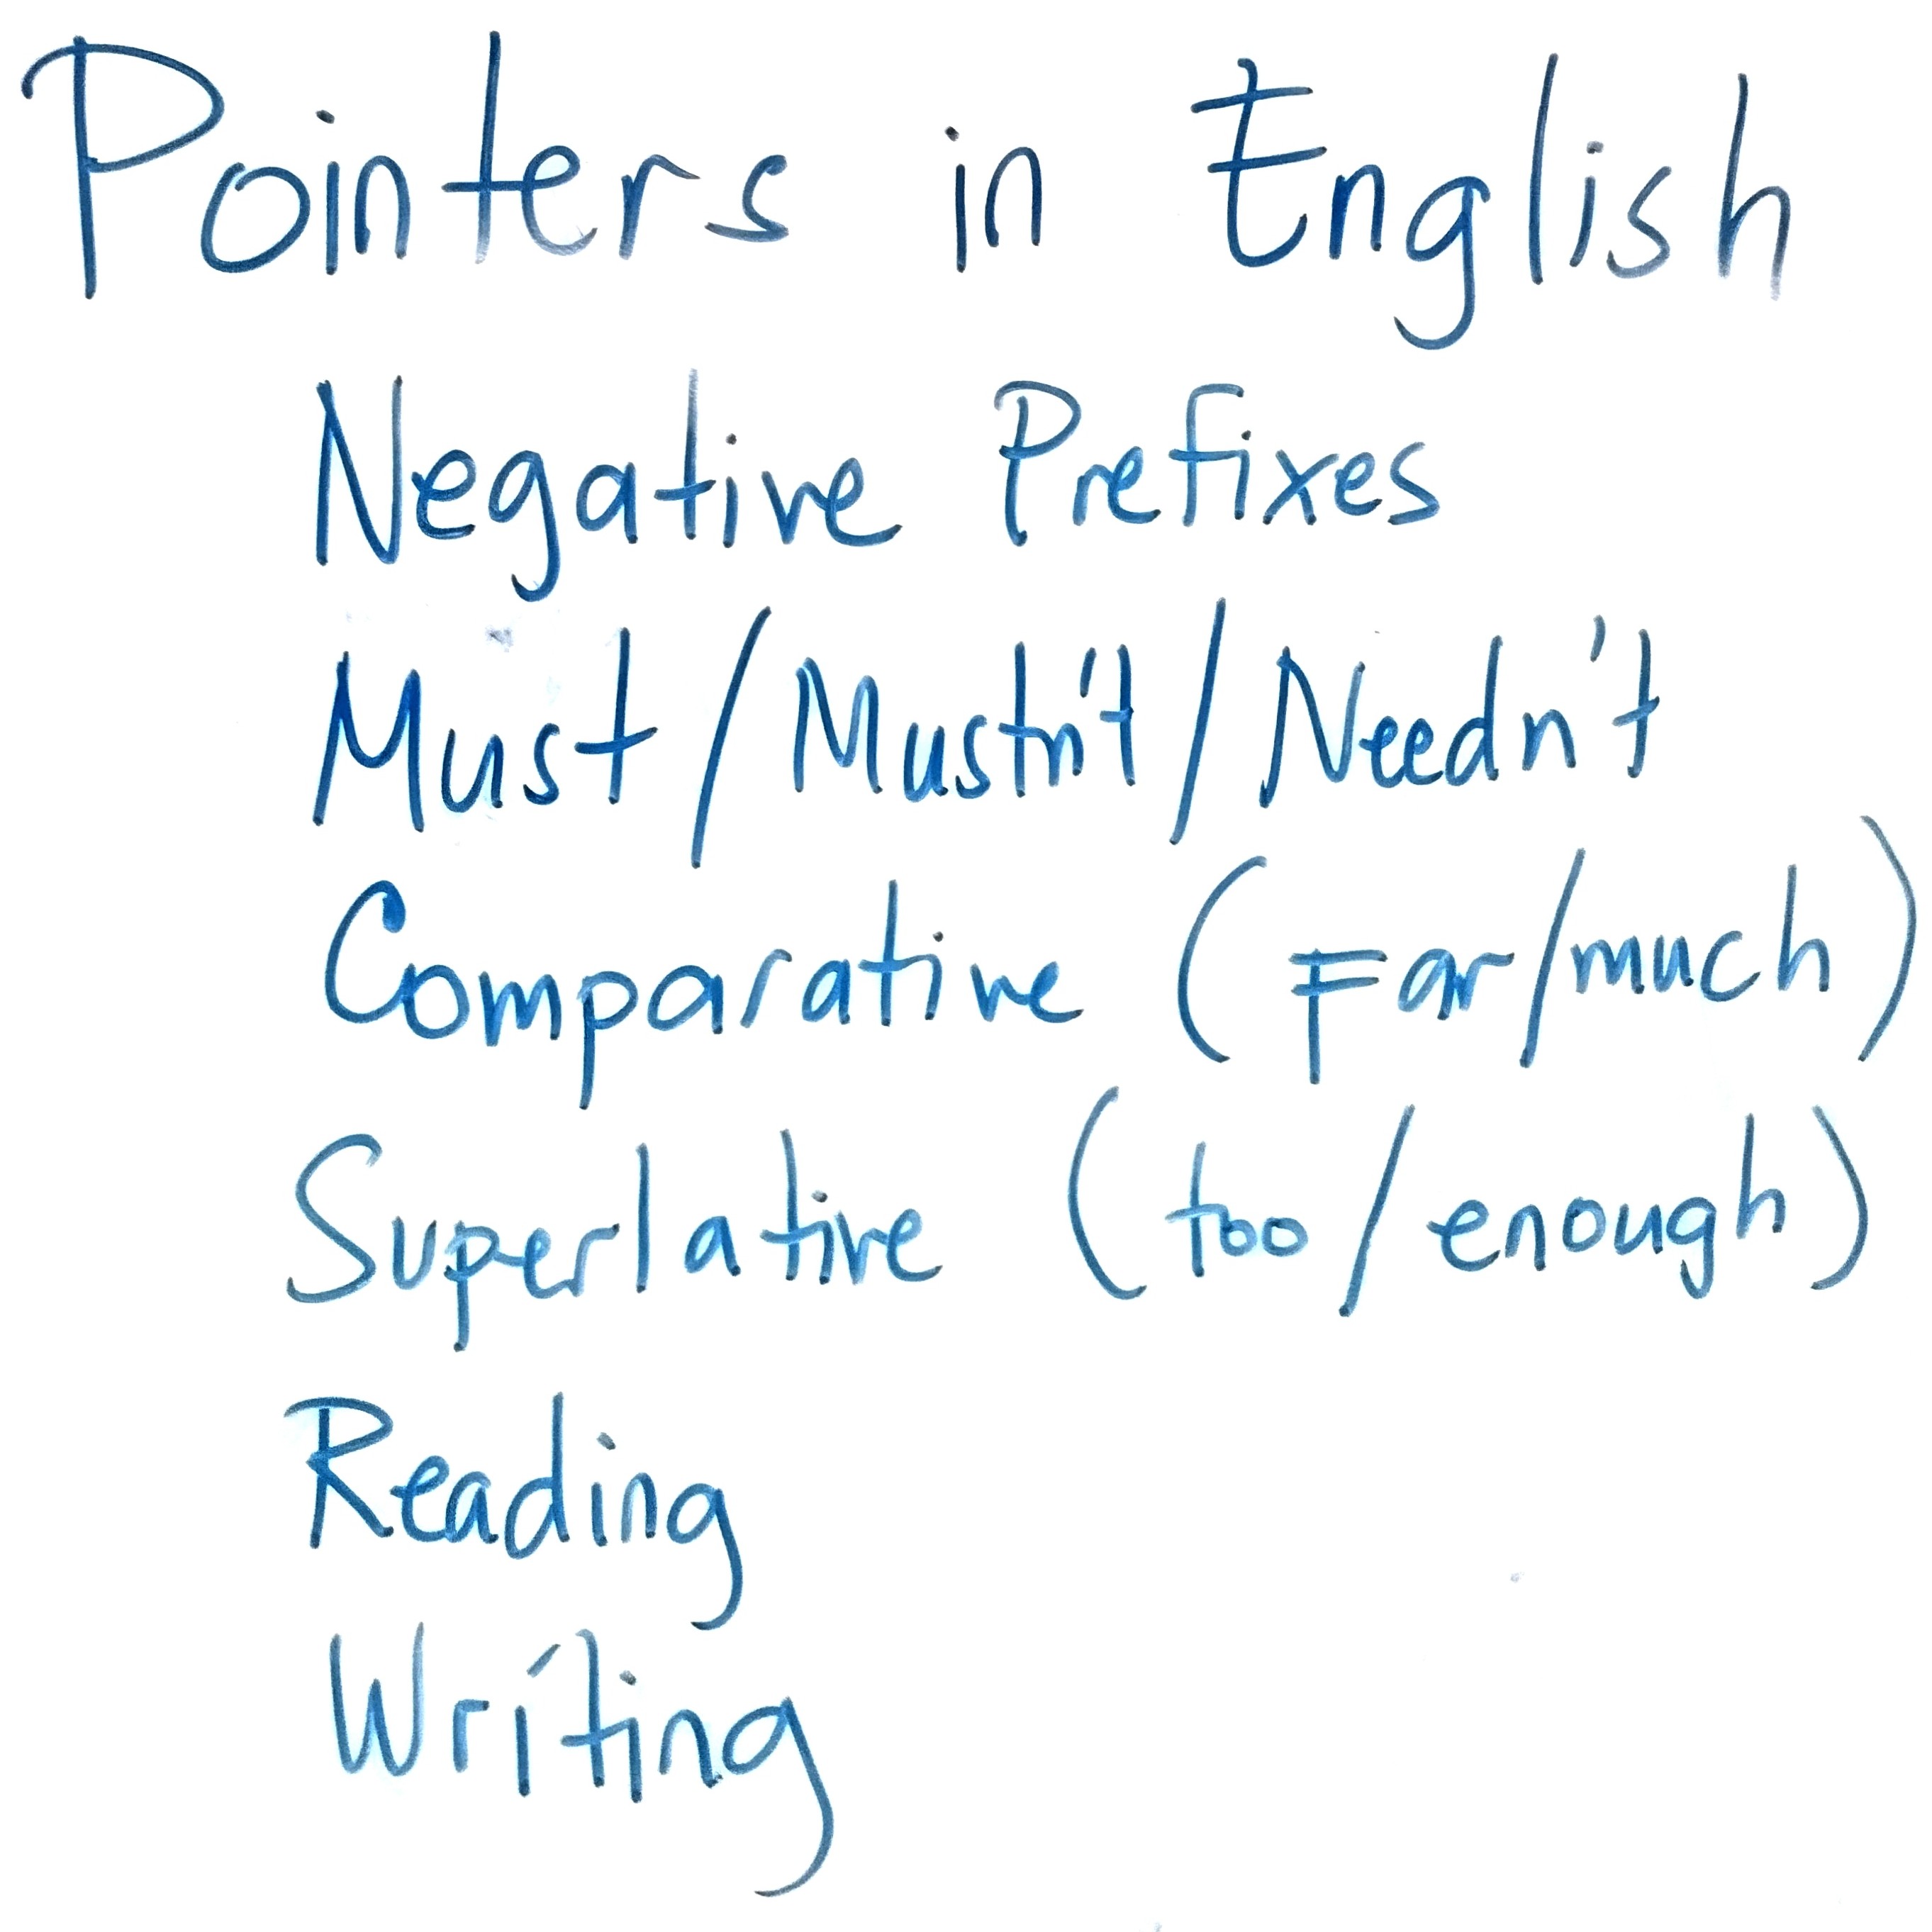 Pointers in English
Negative Prefixes
Must/Mustn't/Needn't
Comparative (Far/much)
Superlative (too/enough)
Reading
Writing